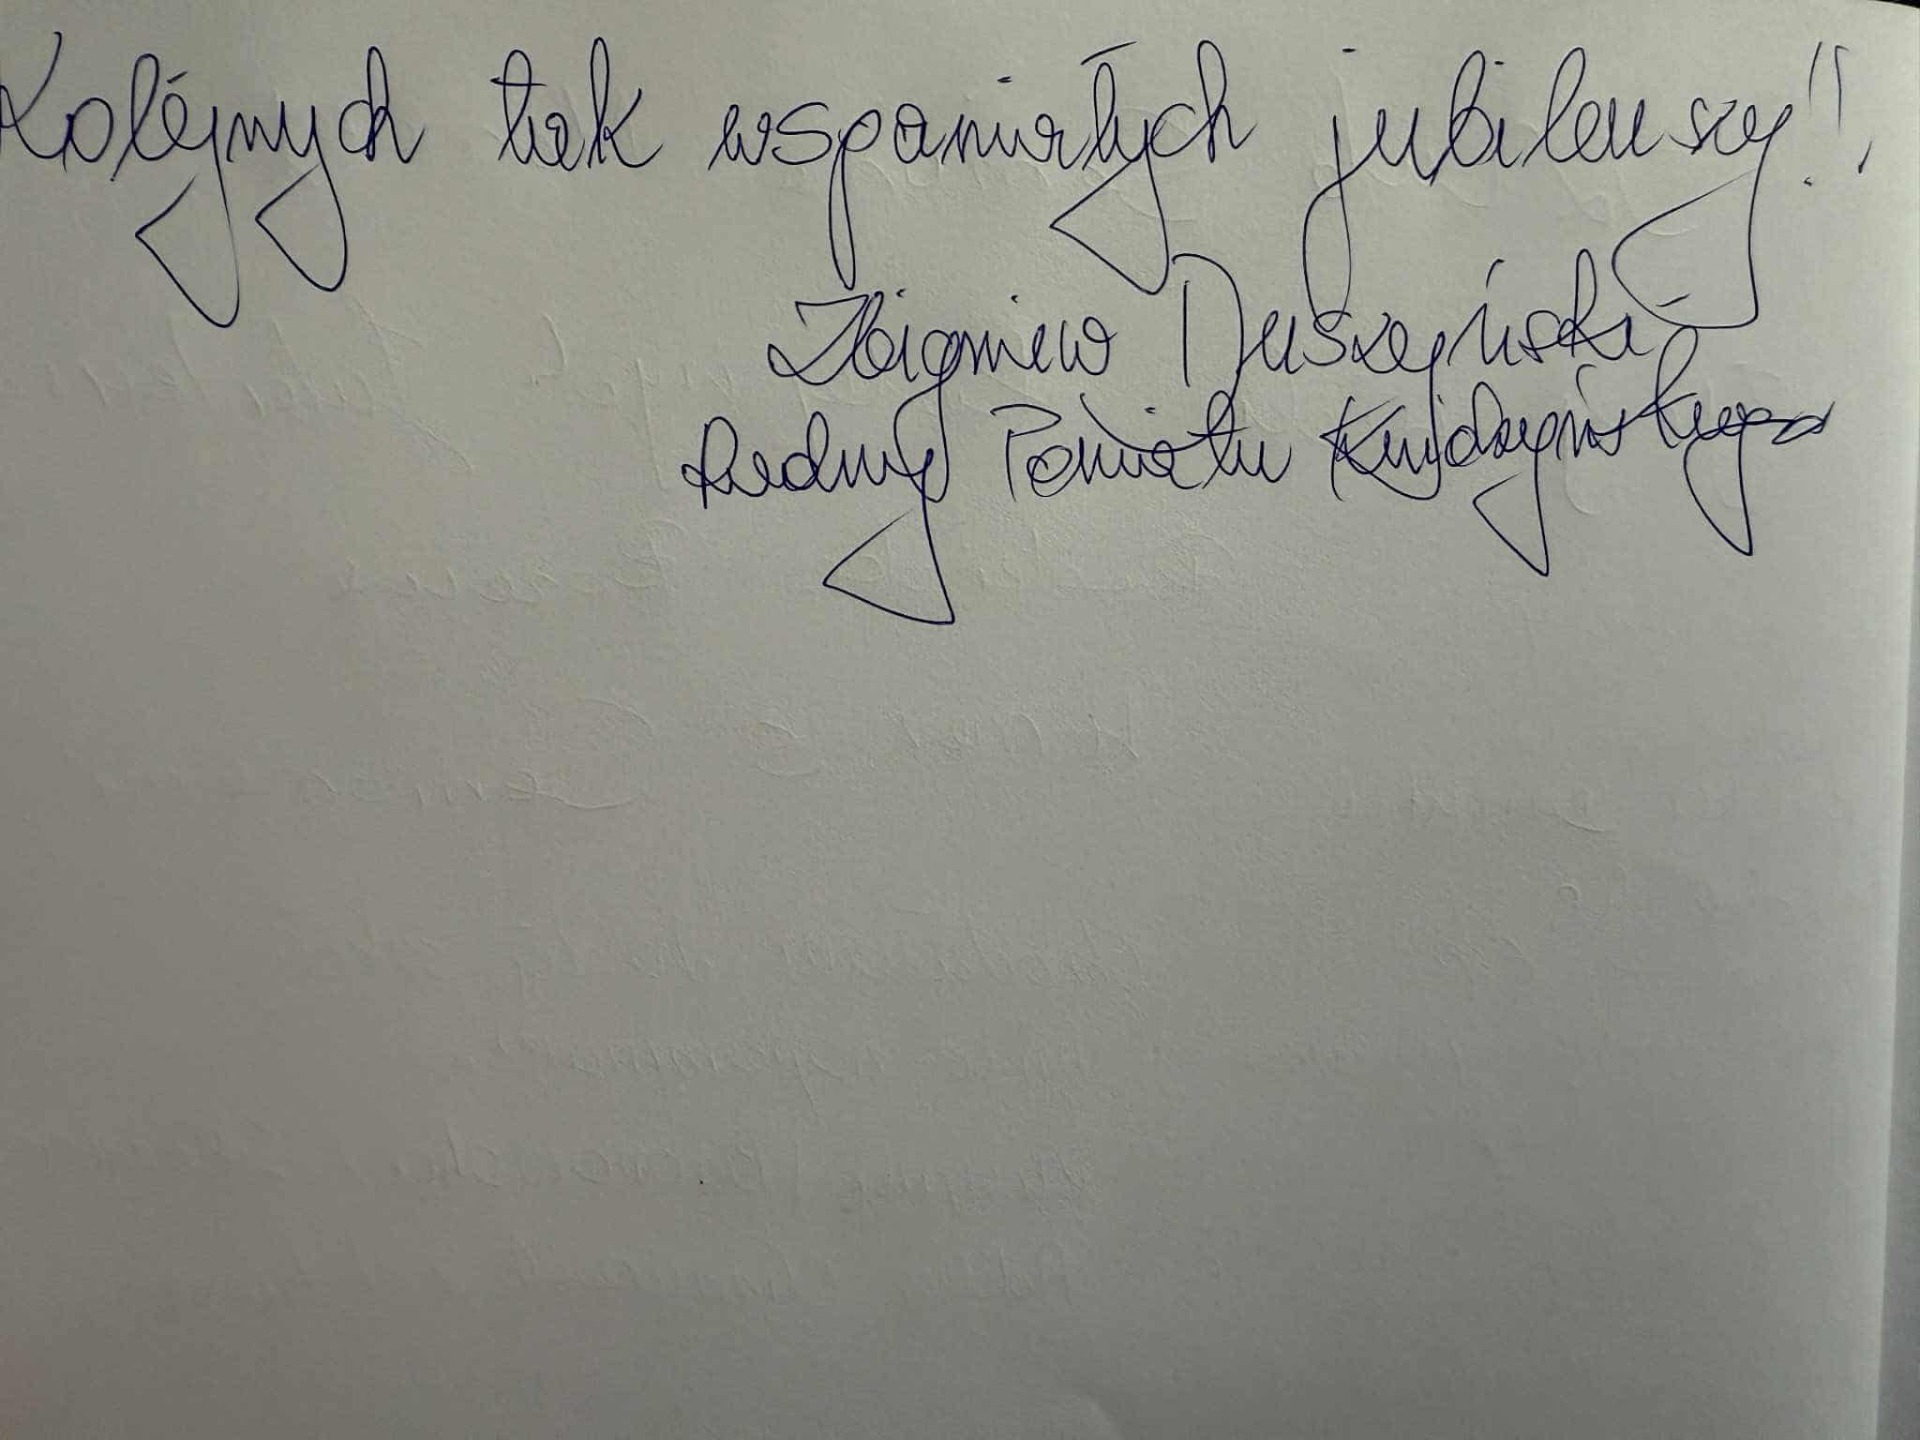 Kolejnych tak wspaniałych jubileuszy!!
Zbigniew Duszyński
Radny Powiatu Kwidzyńskiego